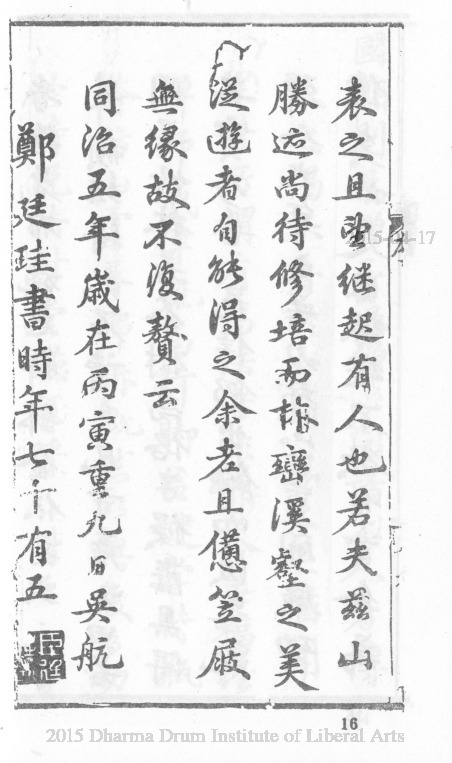 表之且望继起有人也若夫兹山
勝迹尚待修培而詩巒溪壑之美
從遊者自能得之余老且憊笠屐
無缘故不復贅云
同治五年歲在丙寅重九日吳航
鄭廷珪書時年七十有五
2015-04-17
16
2015 Dharma Drum Institute of Liberal Arts